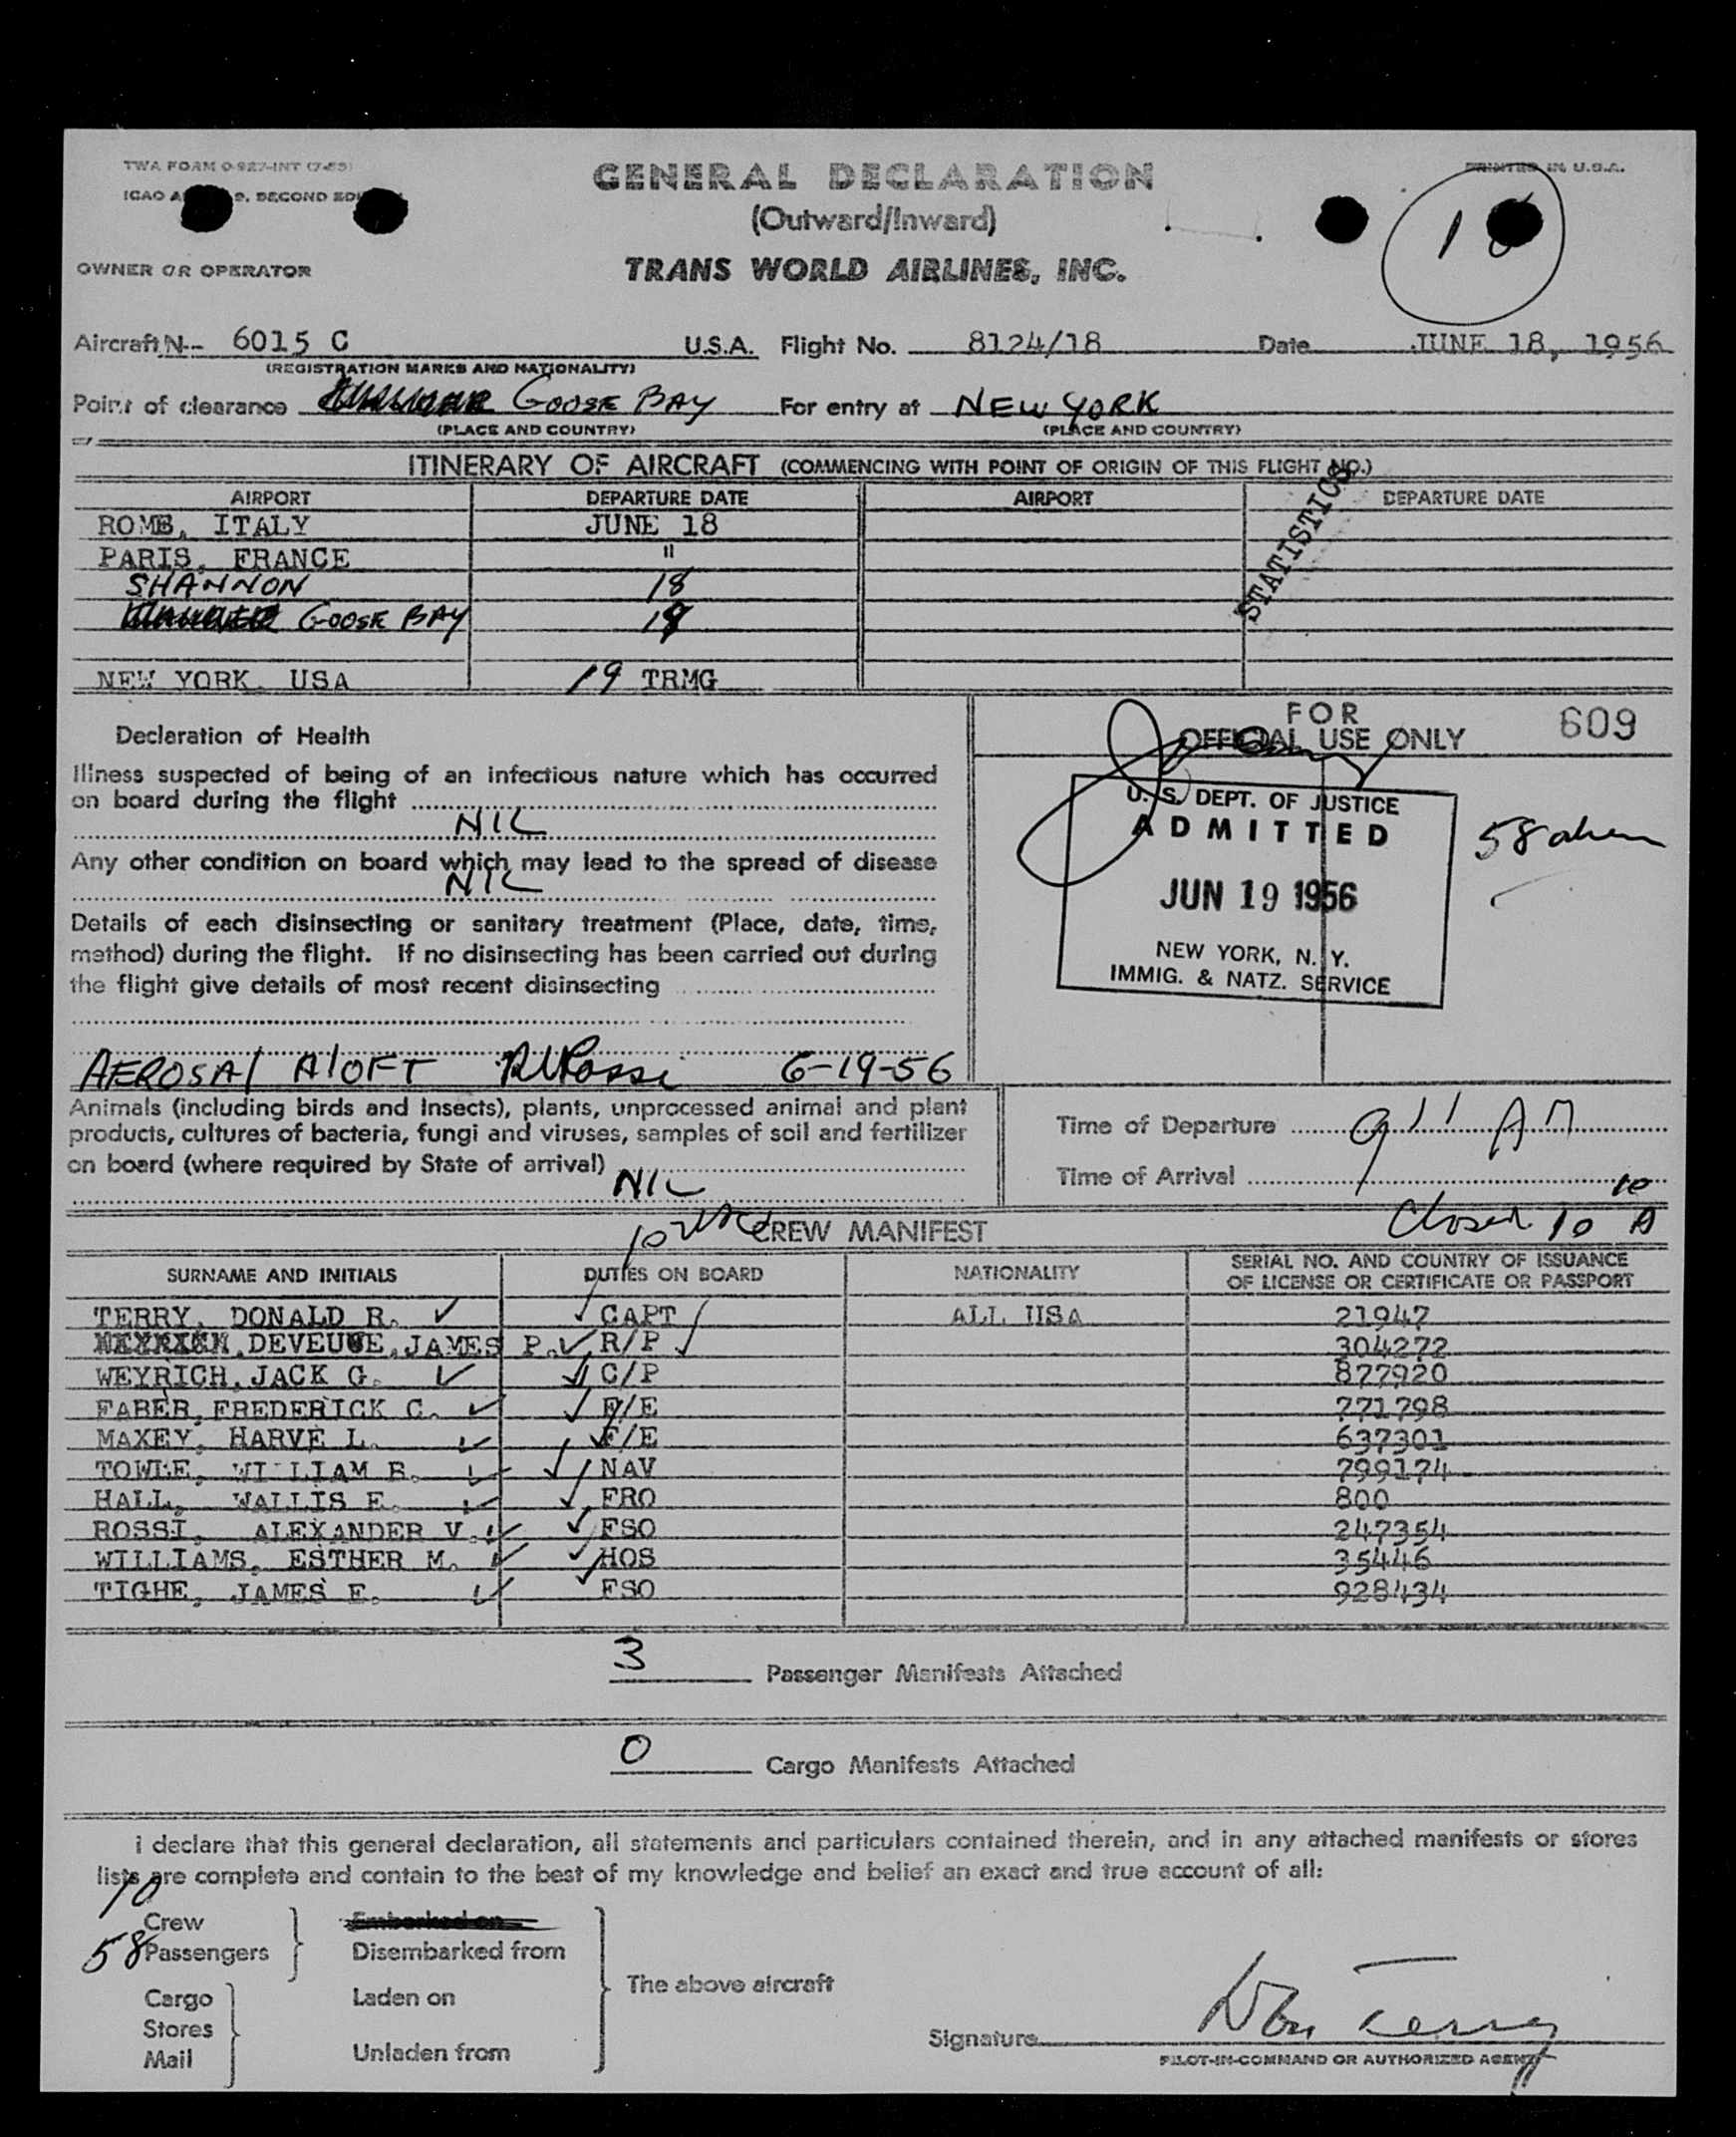 TWA FORM O-927-INT (7-55)
PRINTED IN U.S.A.
GENERAL DECLARATION
ICAO 9, SECOND
(Outward/Inward)
1
OWNER OR OPERATOR
TRANS WORLD AIRLINES, INC.
Aircraft N-- 6015 C U.S.A. Flight No. 8124/18 Date JUNE 18, 1956
(REGISTRATION MARKS AND NATIONALITY)
Point of clearance GOOSE BAY For entry at NEW YORK
(PLACE AND COUNTRY) (PLACE AND COUNTRY)
ITINERARY OF AIRCRAFT (COMMENCING WITH POINT OF ORIGIN OF THIS FLIGHT NO.)
AIRPORT DEPARTURE DATE AIRPORT DEPARTURE DATE
STATISTICS
ROME, ITALY JUNE 18
PARIS, FRANCE "
SHANNON 18
GOOSE BAY 19
NEW YORK, USA 19 TRMG
Declaration of Health
Illness suspected of being of an infectious nature which has occurred
on board during the flight
NIL
Any other condition on board which may lead to the spread of disease
NIL
Details of each disinsecting or sanitary treatment (Place, date, time,
method) during the flight. If no disinsecting has been carried out during
the flight give details of most recent disinsecting
AEROSAl AlOFT Rossi 6-19-56
FOR
OFFICIAL USE ONLY
609
U. S. DEPT. OF JUSTICE
ADMITTED
JUN 19 1956
NEW YORK, N. Y.
IMMIG. & NATZ. SERVICE
58
Animals (including birds and insects), plants, unprocessed animal and plant
products, cultures of bacteria, fungi and viruses, samples of soil and fertilizer
on board (where required by State of arrival)
NIL
Time of Departure 911 AM
Time of Arrival
Closed 10 10 A
10 USC CREW MANIFEST
SURNAME AND INITIALS DUTIES ON BOARD NATIONALITY SERIAL NO. AND COUNTRY OF ISSUANCE
OF LICENSE OR CERTIFICATE OR PASSPORT
TERRY, DONALD R. CAPT ALL USA 21947
DEVEUVE, JAMES P. R/P 304272
WEYRICH, JACK G. C/P 877920
FABER, FREDERICK C. F/E 771798
MAXEY, HARVE L. F/E 637301
TOWLE, WILLIAM B. NAV 799174
HALL, WALLIS E. FRO 800
ROSSI, ALEXANDER V. FSO 247354
WILLIAMS, ESTHER M. HOS 35446
TIGHE, JAMES E. FSO 928434
3 Passenger Manifests Attached
0 Cargo Manifests Attached
I declare that this general declaration, all statements and particulars contained therein, and in any attached manifests or stores
lists are complete and contain to the best of my knowledge and belief an exact and true account of all:
10
Crew Embarked on
58 Passengers Disembarked from
The above aircraft
Cargo Laden on
Stores
Mail Unladen from
Signature Don Terry
PILOT-IN-COMMAND OR AUTHORIZED AGENT